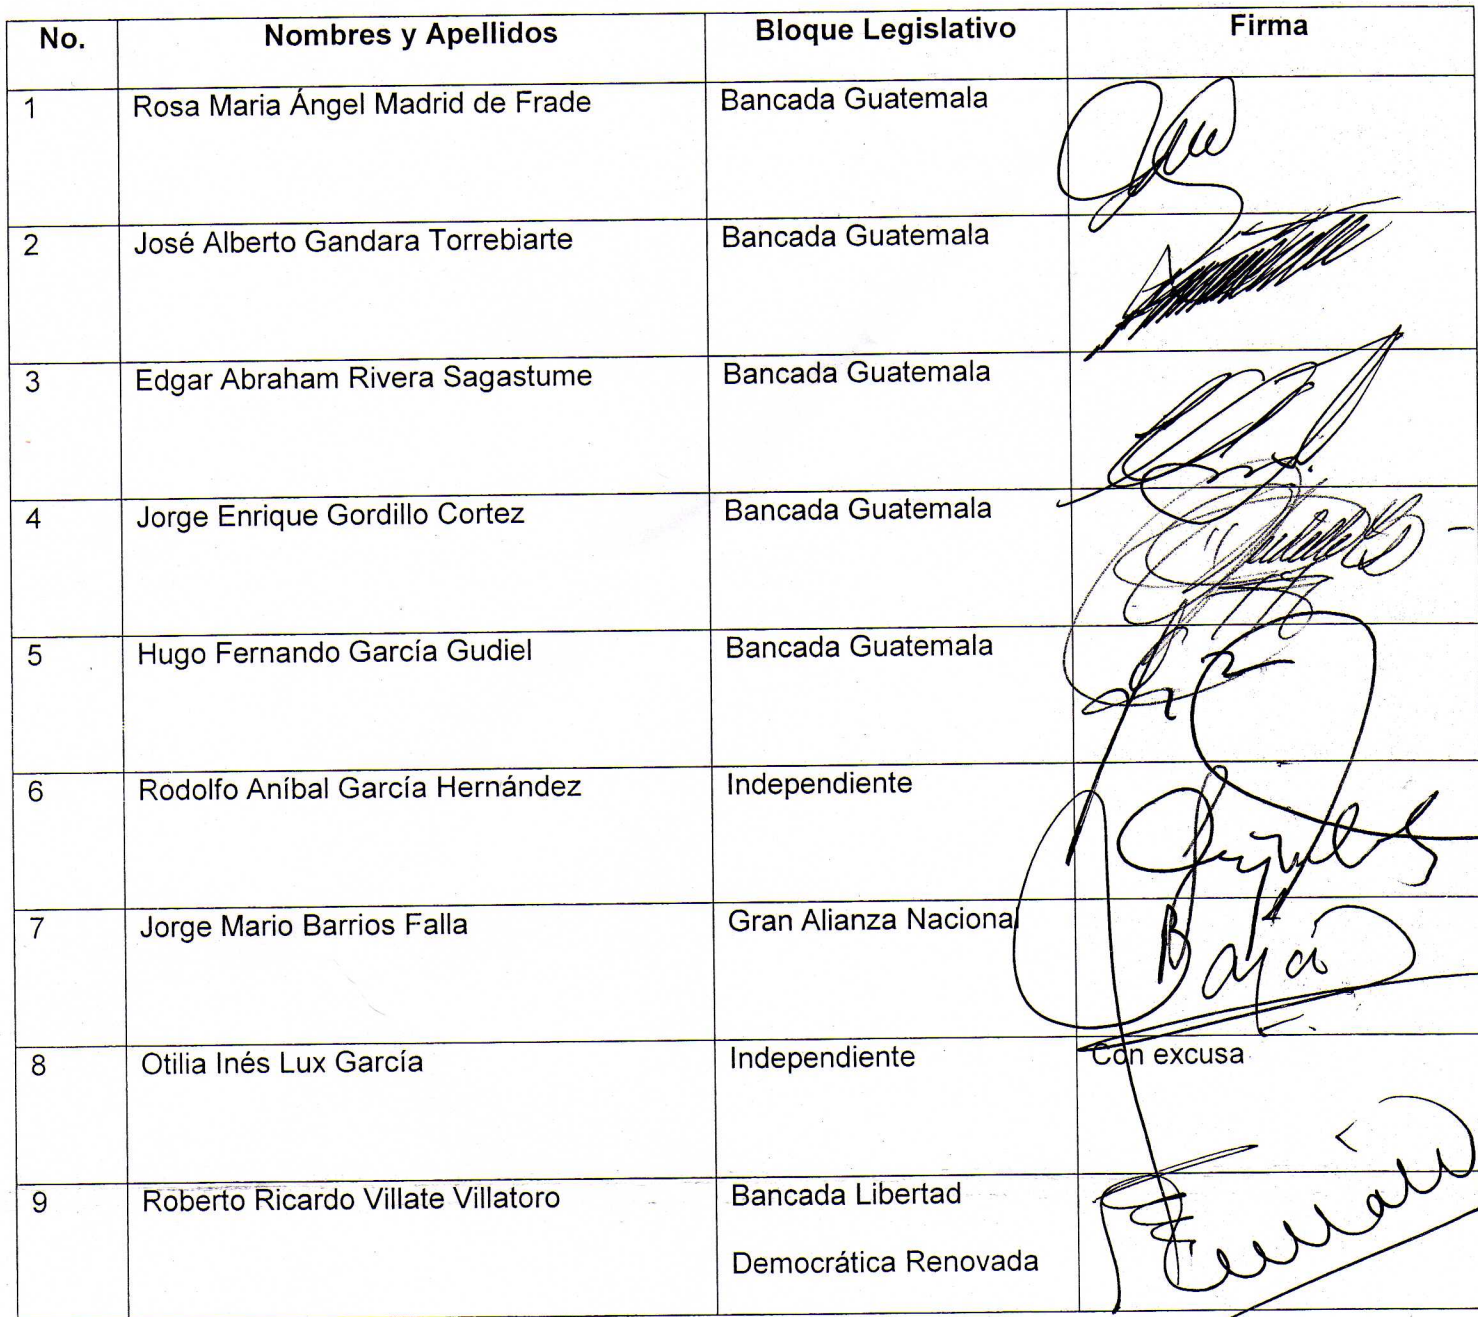 No. Nombres y Apellidos Bloque Legislativo Firma
1 Rosa Maria Ángel Madrid de Frade Bancada Guatemala
2 José Alberto Gandara Torrebiarte Bancada Guatemala
3 Edgar Abraham Rivera Sagastume Bancada Guatemala
4 Jorge Enrique Gordillo Cortez Bancada Guatemala
5 Hugo Fernando García Gudiel Bancada Guatemala
6 Rodolfo Aníbal García Hernández Independiente
7 Jorge Mario Barrios Falla Gran Alianza Nacional
8 Otilia Inés Lux García Independiente Con excusa
9 Roberto Ricardo Villate Villatoro Bancada Libertad
Democrática Renovada